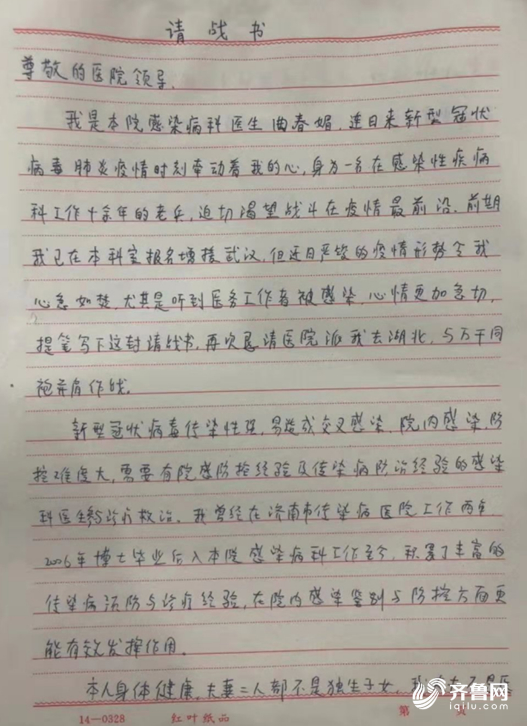 请战书
尊敬的医院领导,
我是本院感染病科医生曲春媚,连日来新型冠状
病毒肺炎疫情时刻牵动着我的心,身为一名在感染性疾病
科工作十余年的老兵,迫切渴望战斗在疫情最前沿。前期
我已在本科室报名增援武汉,但近日严峻的疫情形势令我
心急如焚,尤其是听到医务工作者被感染,心情更加急切,
提笔写下这封请战书,再次恳请医院派我去湖北,与万千同
袍并肩作战。
新型冠状病毒传染性强,易造成交叉感染、院内感染,防
控难度大,需要有院感防控经验及传染病防治经验的感染
科医生参与诊疗救治。我曾经在济南市传染病医院工作两年
2006年博士毕业后入本院感染病科工作至今,积累了丰富的
传染病预防与诊疗经验,在院内感染鉴别与防控方面更
能有效发挥作用。
本人身体健康,夫妻二人都不是独生子女,
14-0328 红叶纸品 第 页
齐鲁网
iqilu.com